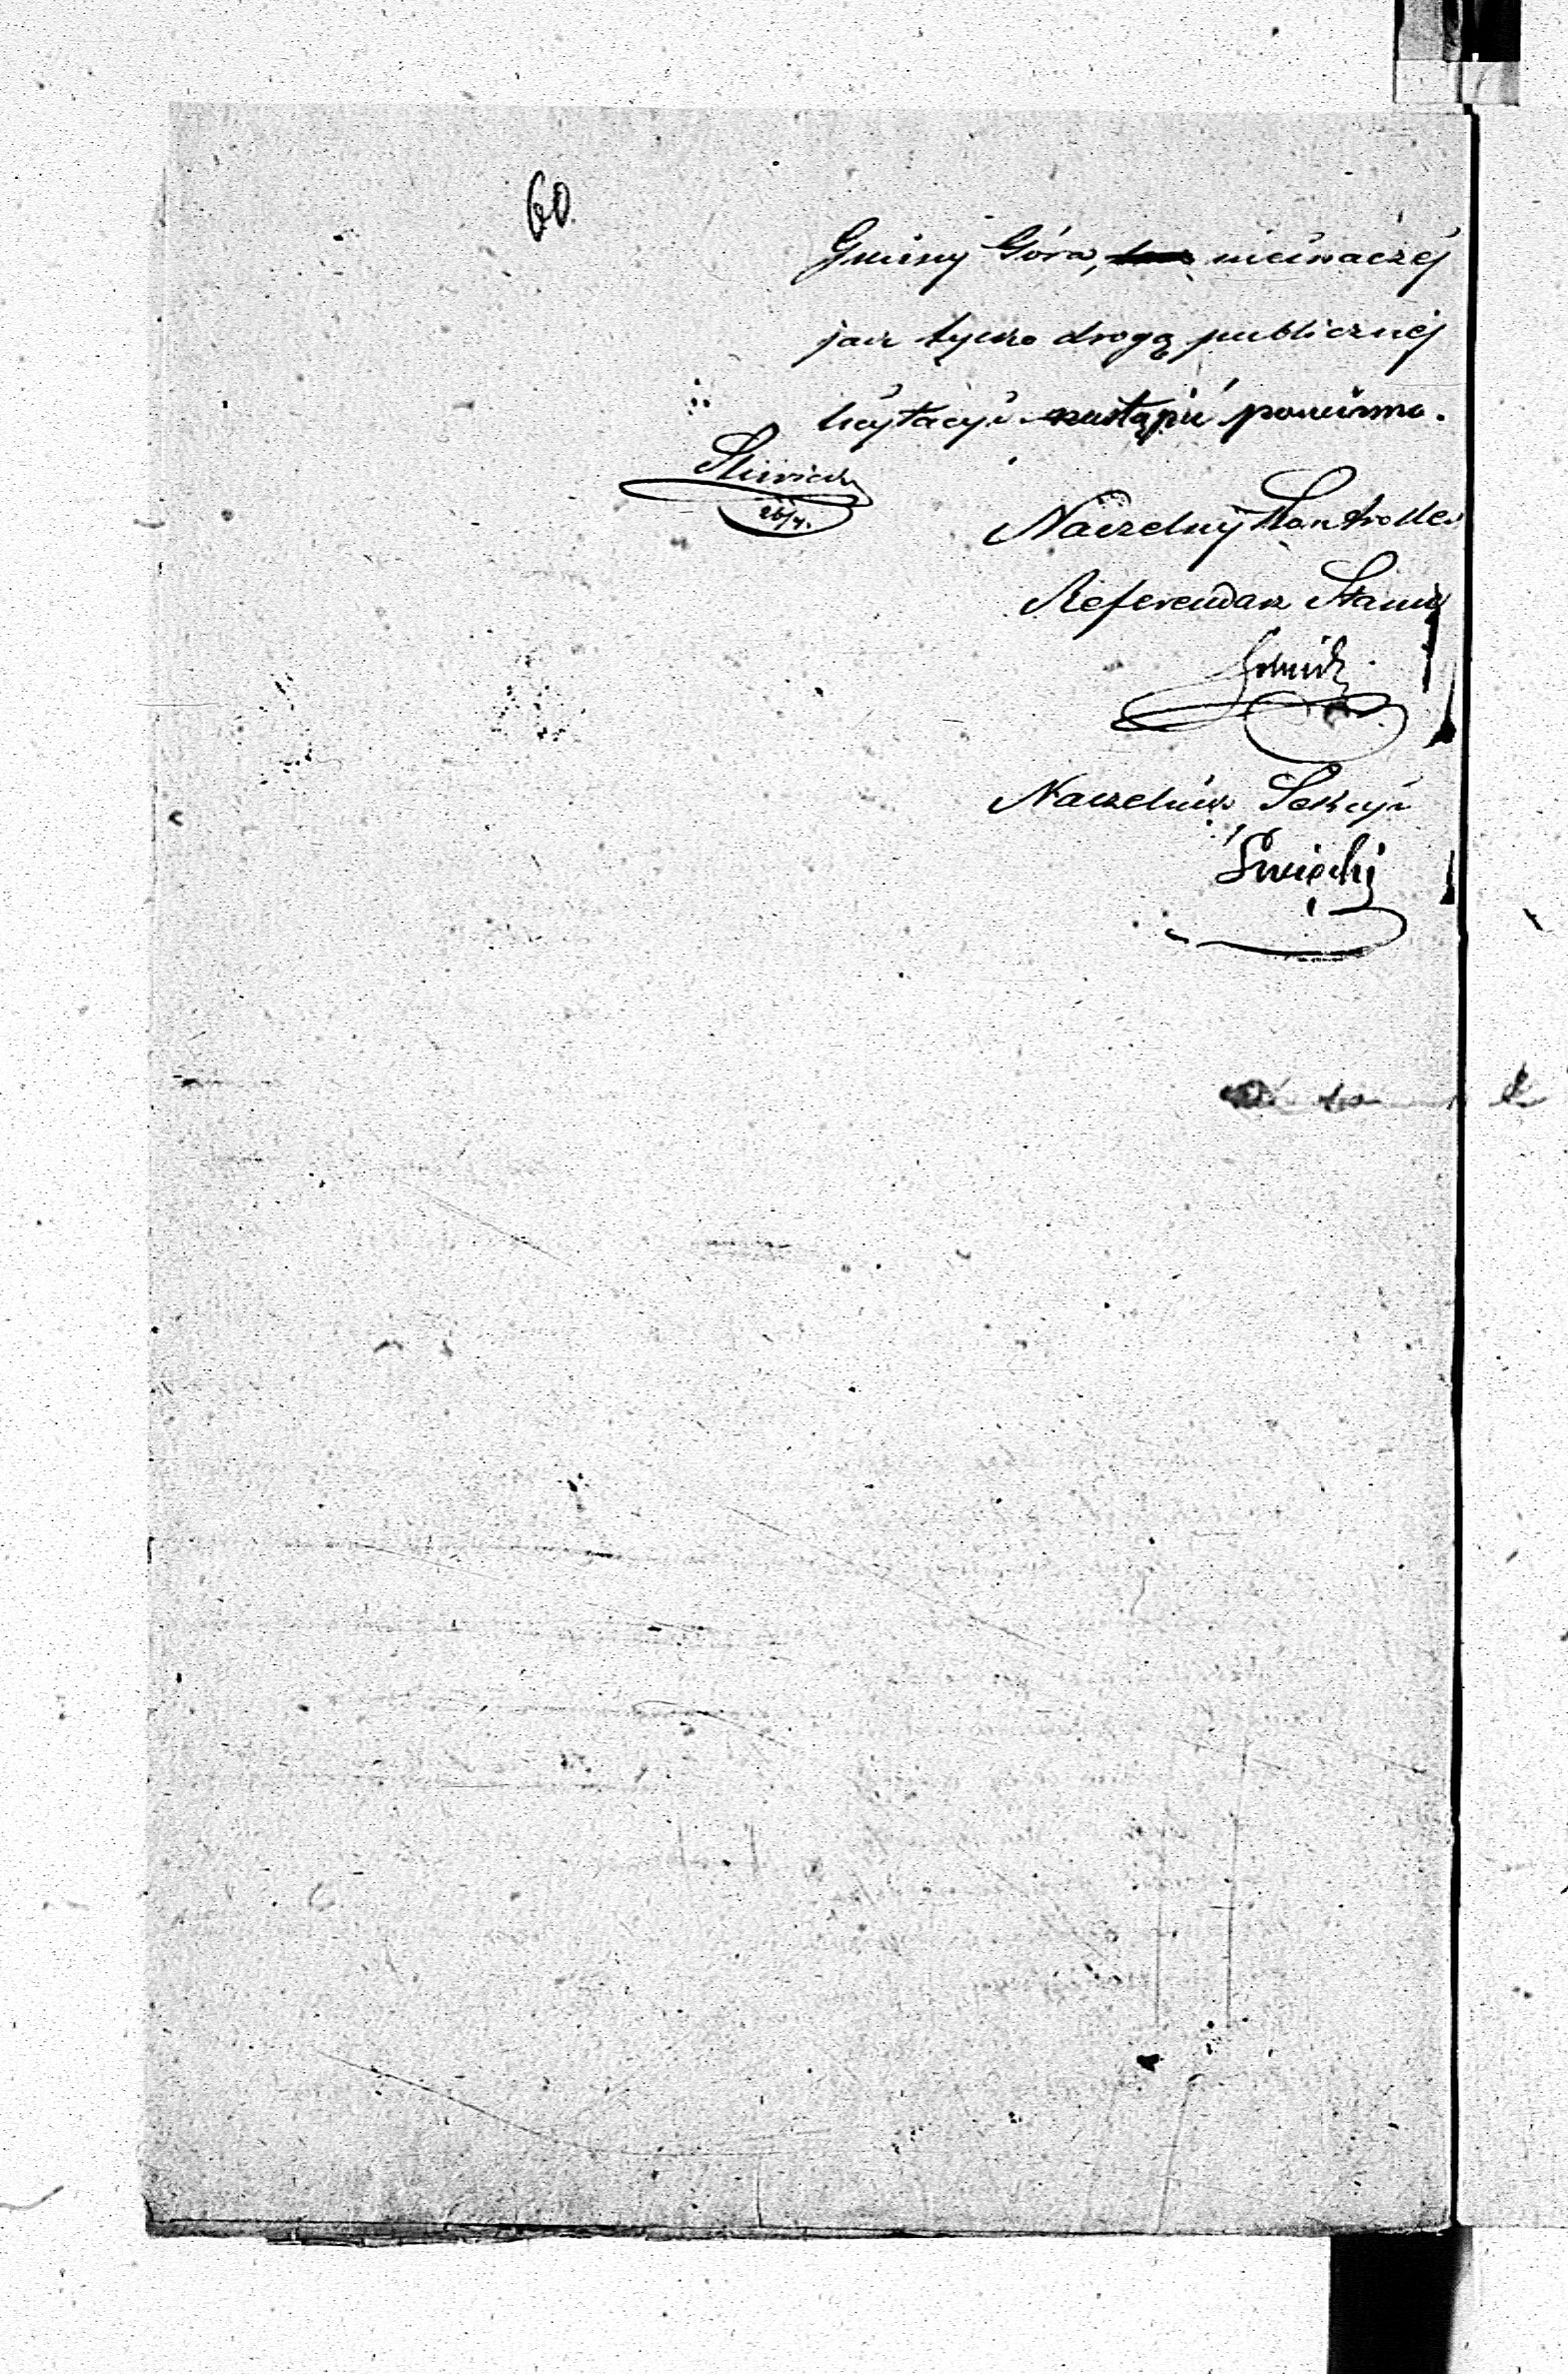 60.
Gminy Góra, nieinaczéj
jak tylko drogą publicznéj
licytacyi nastąpić powinno.
26/4.
Naczelny Kontroller
Referendarz Stanu
Naczelnik Sekcyi
Święcki